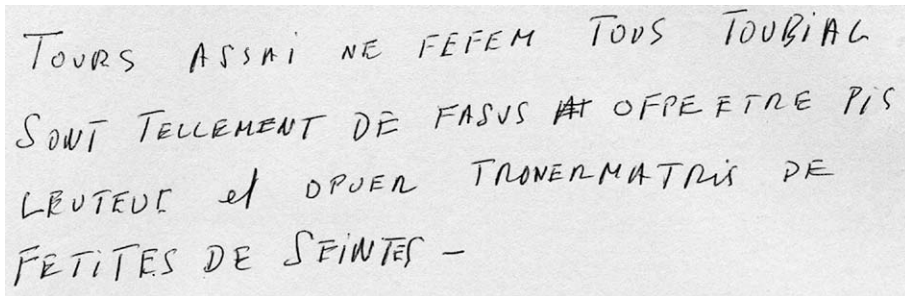 TOURS ASSAi NE FEFEM TOUS TOUBiAL
SONT TELLEMENT DE FASUS OFPE ETRE PiS
LEUTEUR et OPUER TRONERMATRiS DE
FETiTES DE SEiNTES -